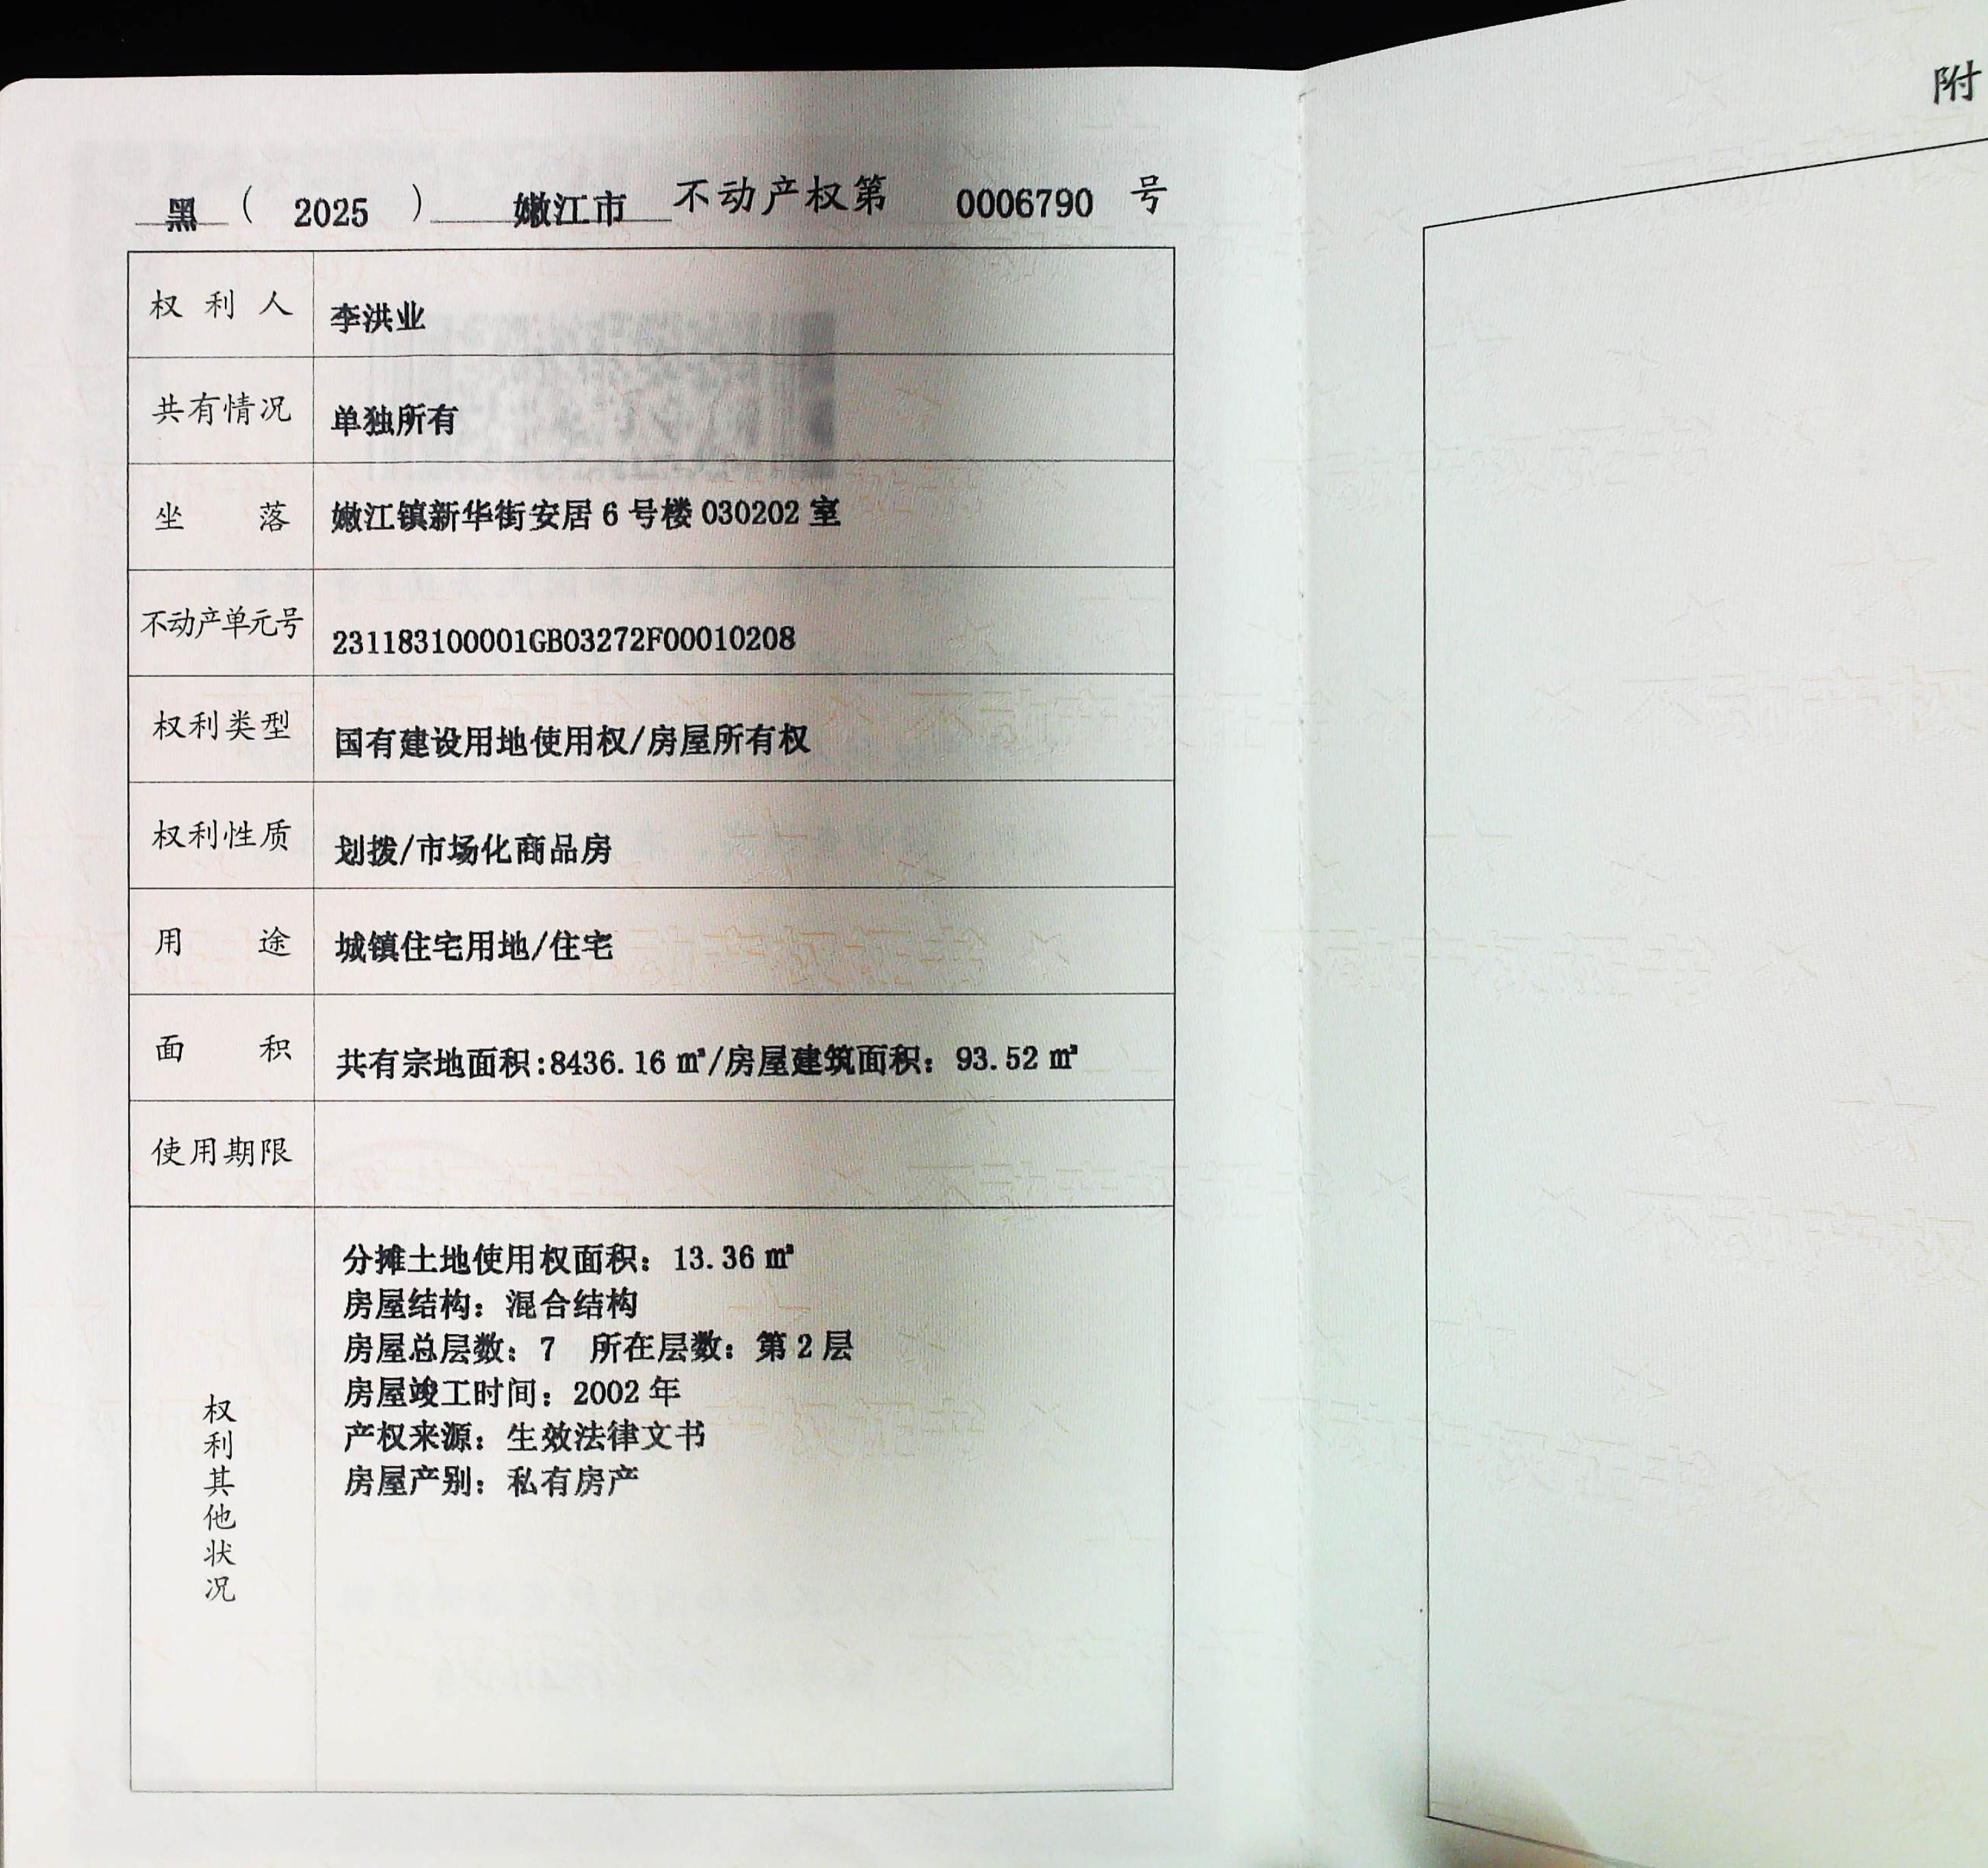 黑 ( 2025 ) 嫩江市 不动产权第 0006790 号
权利人 李洪业
共有情况 单独所有
坐落 嫩江镇新华街安居 6 号楼 030202 室
不动产单元号 231183100001GB03272F00010208
权利类型 国有建设用地使用权/房屋所有权
权利性质 划拨/市场化商品房
用途 城镇住宅用地/住宅
面积 共有宗地面积:8436.16 ㎡/房屋建筑面积：93.52 ㎡
使用期限
权利其他状况
分摊土地使用权面积：13.36 ㎡
房屋结构：混合结构
房屋总层数：7 所在层数：第 2 层
房屋竣工时间：2002 年
产权来源：生效法律文书
房屋产别：私有房产
附